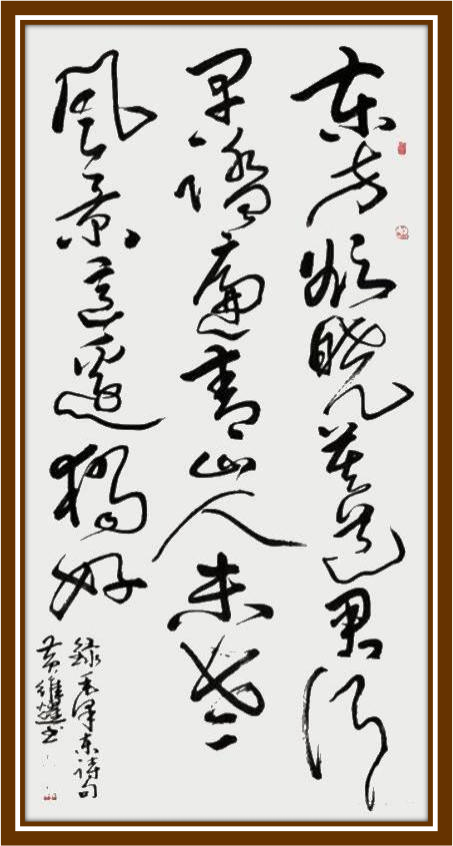 东方欲晓莫道君行
早踏遍青山人未老
风景这边独好
录毛泽东诗句
黄维书